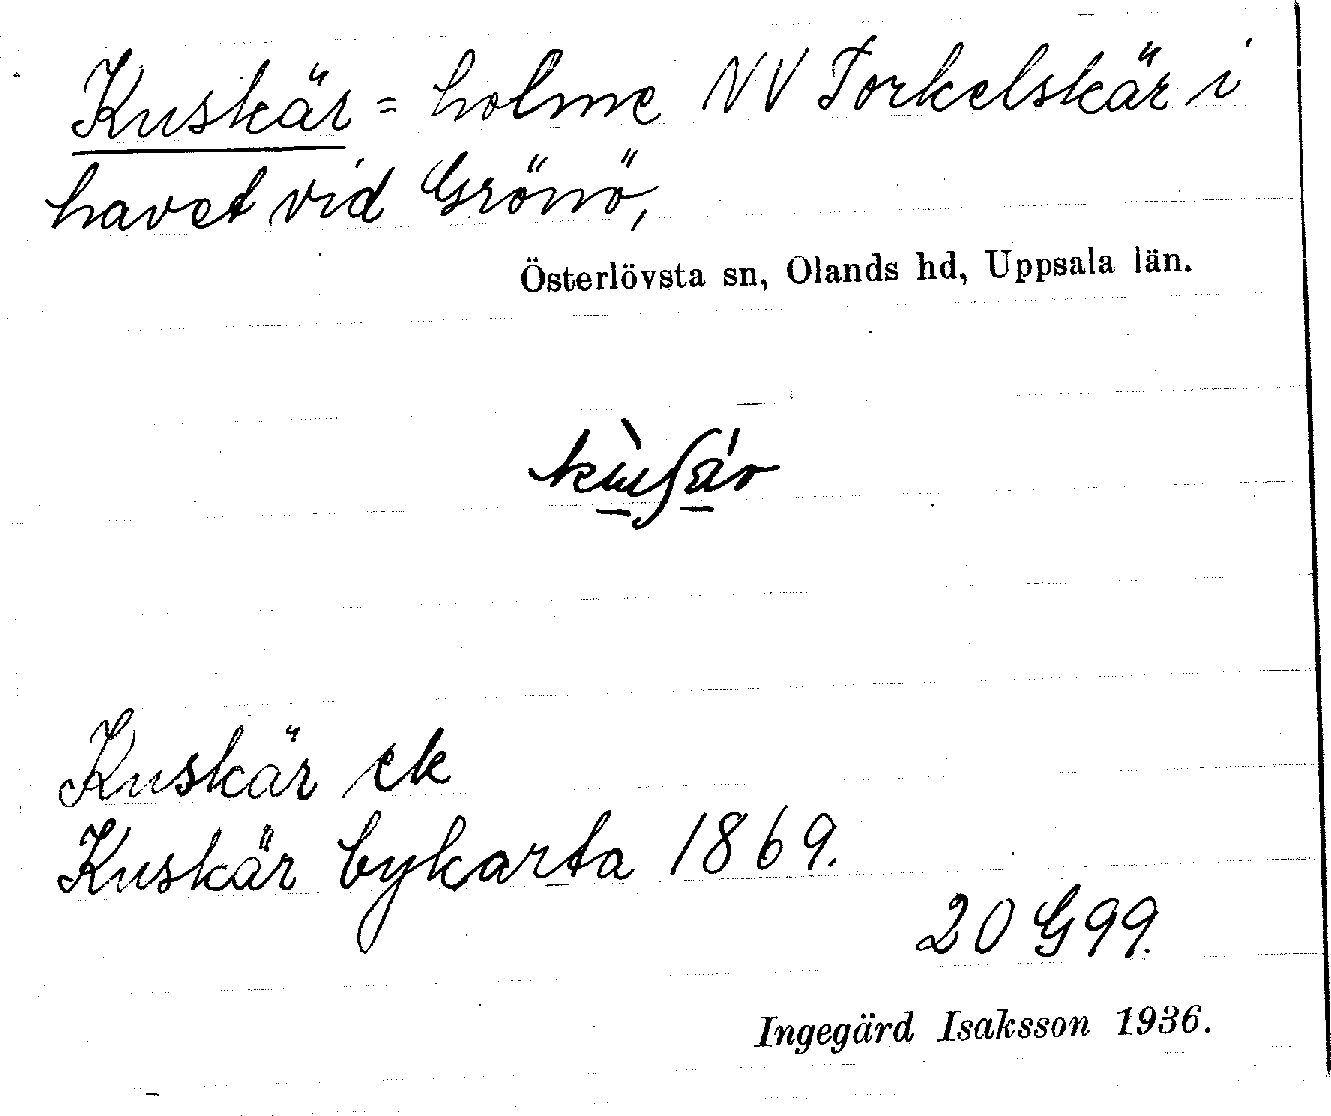 Kuskär = holme NV Torkelskär i
havet vid Grönö,
Österlövsta sn, Olands hd, Uppsala län.
Kuskär ek
Kuskär bykarta 1869.
20 G 99.
Ingegärd Isaksson 1936.